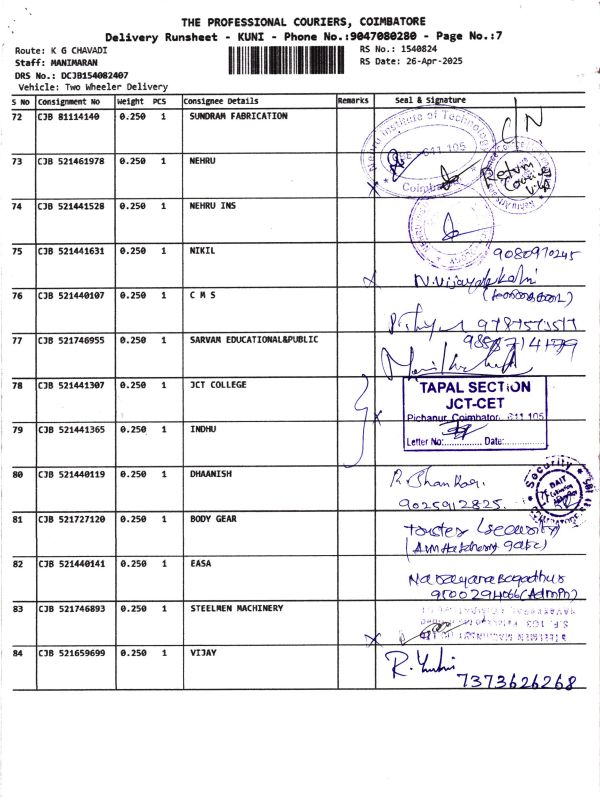 THE PROFESSIONAL COURIERS, COIMBATORE
Delivery Runsheet - KUNI - Phone No.:9047080280 - Page No.:7
Route: K G CHAVADI
RS No.: 1540824
Staff: MANIMARAN
RS Date: 26-Apr-2025
DRS No.: DCJB154082407
Vehicle: Two Wheeler Delivery
S No Consignment No Weight PCS Consignee Details Remarks Seal & Signature
72 CJB 81114140 0.250 1 SUNDRAM FABRICATION
Nehru Institute of Technology
641 105
Coimbatore
73 CJB 521461978 0.250 1 NEHRU
74 CJB 521441528 0.250 1 NEHRU INS
75 CJB 521441631 0.250 1 NIKIL
9080970245
76 CJB 521440107 0.250 1 C M S
77 CJB 521746955 0.250 1 SARVAN EDUCATIONAL&PUBLIC
78 CJB 521441307 0.250 1 JCT COLLEGE
TAPAL SECTION
JCT-CET
Pichanur, Coimbator. 641 105
Letter No: Date:
79 CJB 521441365 0.250 1 INDHU
80 CJB 520440119 0.250 1 DHAANISH
Security
9025912825.
81 CJB 521727120 0.250 1 BODY GEAR
82 CJB 520440141 0.250 1 EASA
83 CJB 521746893 0.250 1 STEELMEN MACHINERY
84 CJB 521659699 0.250 1 VIJAY
7373626268